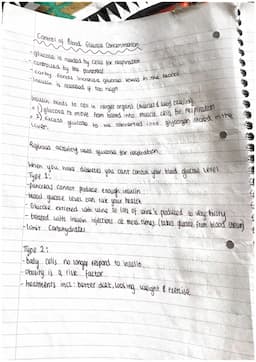 Control of Blood Glucose Concentration
- glucose is needed by cells for respiration
- controlled by the pancreas
- eating foods increase glucose levels in the blood
- insulin is released if too high
Insulin binds to cells in target organs (muscles & liver) causing:
1) glucose to move from blood into muscle cells for respiration
2) excess glucose to be converted into glycogen stored in the
liver.
activity uses glucose for respiration.
When you have diabetes you can't control your blood glucose level
Type 1:
- pancreas cannot produce enough insulin
- blood glucose levels can
- Glucose excreted with urine & lots of urine is produced
- treated with insulin injections at meal times (takes glucose from blood
- limit carbohydrates
Type 2:
- Body cells no longer respond to insulin.
- obesity is a risk factor
- treatments incl: better diet, losing weight & exercise